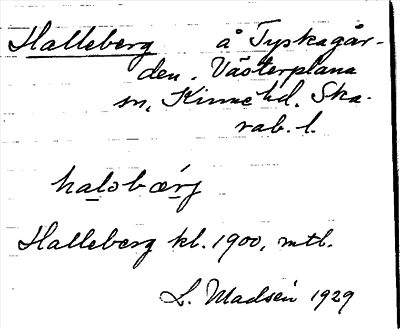 Halleberg å Tyskagår-
den. Västerplana
sn, Kinne hd. Ska-
rab. l.
halobærg
Halleberg kl. 1900, mtl.
L. Madsén 1929